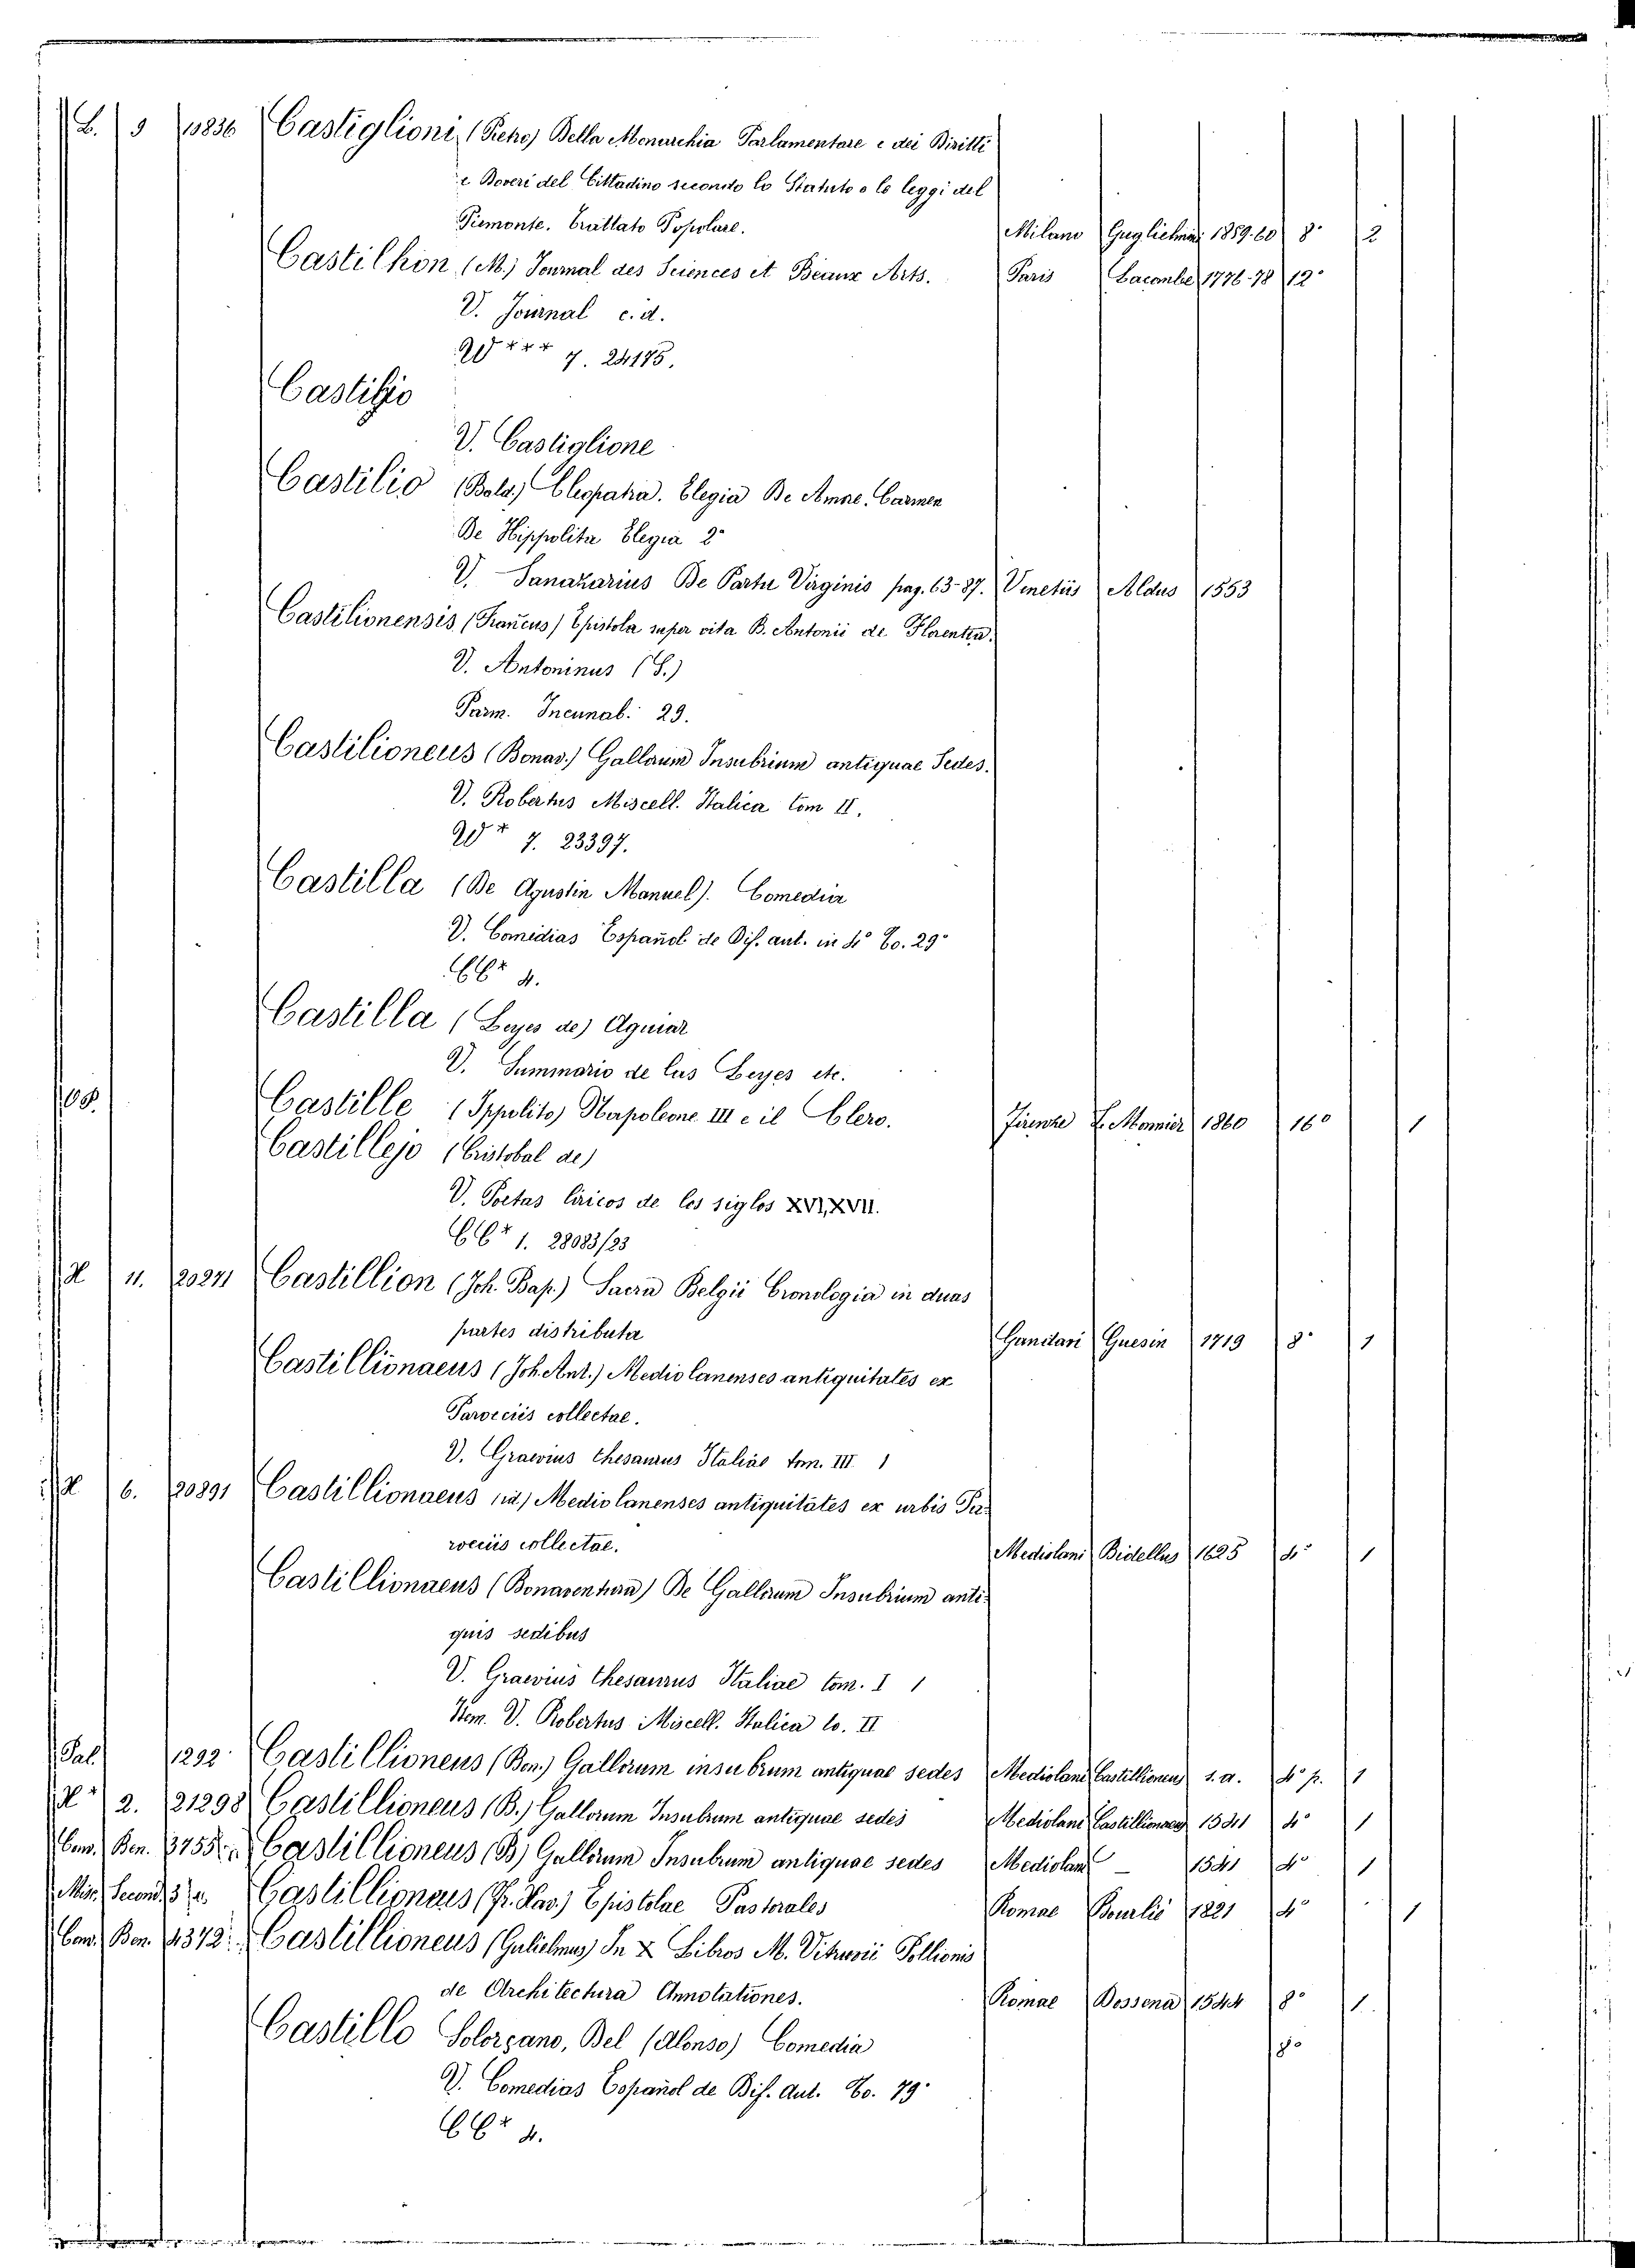 L. 9 13836 Castiglioni (Pietro) Della Monarchia Parlamentare e dei Diritti
e Doveri del Cittadino secondo lo Statuto e le leggi del
Piemonte. Trattato Popolare. Milano Guglielmini 1859-60 8° 2
Castilhon (M.) Journal des Sciences et Beaux Arts. Paris Lacombe 1776-78 12°
V. Journal c. d.
W*** 7. 24175.
Castilio
V. Castiglione
Castilio (Bald.) Cleopatra. Elegia De Amne. Carmen
De Hippolita Elegia 2°
V. Sanazarius De Partu Virginis pag. 63-87. Venetiis Aldus 1553
Castilionensis (Francus) Epistola super vita B. Antonii de Florentia.
V. Antoninus (S.)
Parm. Incunab. 29.
Castilioneus (Bonav.) Gallorum Insubrium antiquae Sedes.
V. Robertus Miscell. Italica tom II.
W* 7. 23397.
Castilla (De Agustin Manuel). Comedia
V. Comidias Español de Dif. aut. in 4° To. 29°
CC* 4.
Castilla (Leyes de) Aguiar
V. Summario de las Leyes etc.
108. Castille (Ippolito) Napoleone III e il Clero. Firenze L. Monnier 1860 16° 1
Castillejo (Cristobal de)
V. Poetas liricos de los siglos XVI, XVII.
CC* 1. 28083/23
H 11. 20271 Castillion (Joh. Bap.) Sacra Belgii Cronologia in duas
partes distributa Gandavi Guesin 1719 8° 1
Castillionaeus (Joh. Ant.) Mediolanenses antiquitates ex
Paroeciis collectae.
V. Graevius thesaurus Italiae tom. III 1
H 6. 20891 Castillionaeus (id.) Mediolanenses antiquitates ex urbis Pa-
roeciis collectae. Mediolani Bidellus 1625 4° 1
Castillionaeus (Bonaventura) De Gallorum Insubrium anti-
quis sedibus
V. Graevius thesaurus Italiae tom. I 1
Item. V. Robertus Miscell. Italica to. II
Pal. 1292 Castillioneus (Bon.) Gallorum insubrum antiquae sedes Mediolani Castillioneus s. a. 4° p. 1
H* 2. 21298 Castillioneus (B.) Gallorum Insubrum antiquae sedes Mediolani Castillioneus 1541 4° 1
Cam. Ben. 3755 Castillioneus (B) Gallorum Insubrum antiquae sedes Mediolani — 1541 4° 1
Misc. Second. 3 Castillioneus (Fr. Xav.) Epistolae Pastorales Romae Bourlié 1821 4° 1
Cam. Ben. 4372 Castillioneus (Gulielmus) In X Libros M. Vitruvii Pollionis
de Architectura Annotationes. Romae Dossena 1544 8° 1
Castillo Solorçano, Del (Alonso) Comedia 8°
V. Comedias Español de Dif. Aut. To. 79°
CC* 4.